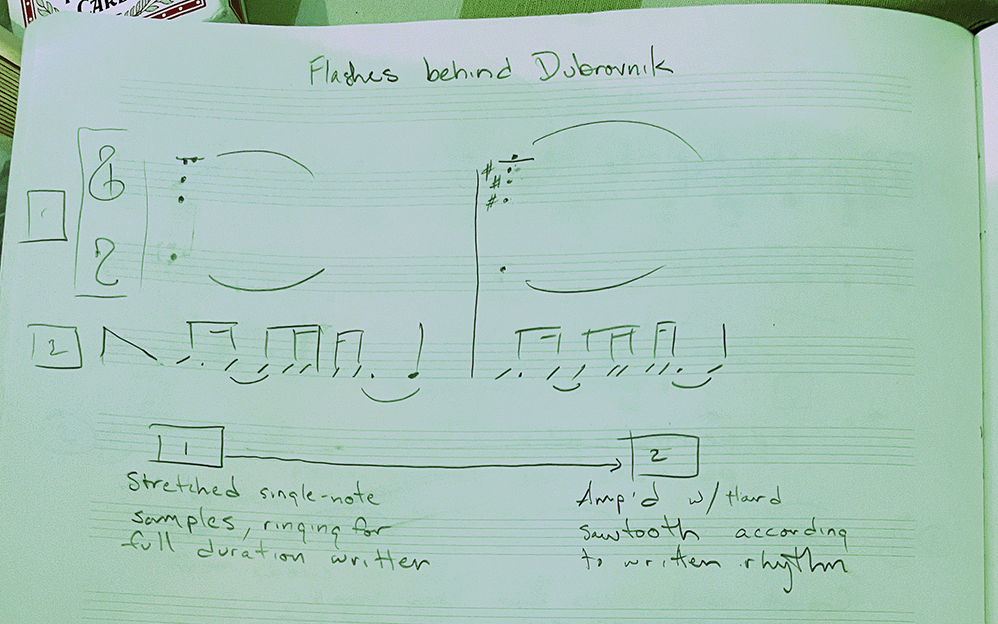 CARD
Flashes behind Dubrovnik
1
2
1
2
Stretched single-note
samples, ringing for
full duration written
Amp'd w/ Hard
sawtooth according
to written rhythm